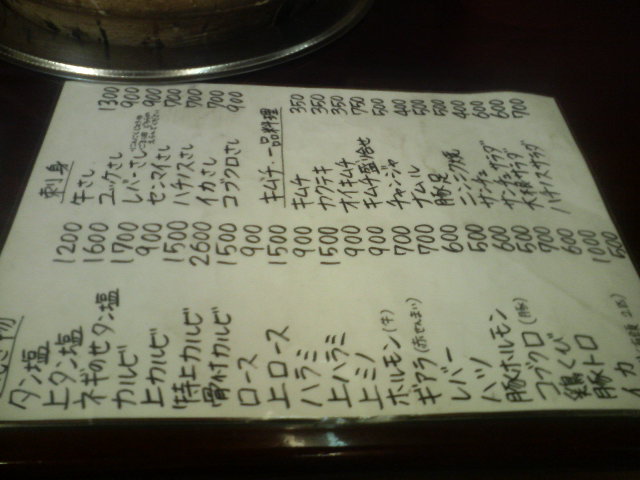 タン塩 1200
上タン塩 1600
ネギのせタン塩 1700
カルビ 900
上カルビ 1500
特上カルビ 2600
骨付カルビ 1500
ロース 900
上ロース 1500
ハラミ 900
上ハラミ 1500
上ミノ 900
ホルモン(牛) 900
ギアラ(赤せんまい) 700
レバー 700
ハツ 600
豚ホルモン 500
コブクロ(豚) 600
鶏くび 500
豚トロ 700
イカ 600
1000
500
刺身
牛さし 1300
ユッケさし 900
レバーさし 900
センマイさし 700
ハチノスさし 700
イカさし 700
コブクロさし 900
キムチ・一品料理
キムチ 350
カクテキ 350
オイキムチ 350
キムチ盛り合せ 750
チャンジャ 500
ナムル 400
豚足 500
ニンニク焼 500
サンチュ 400
サンチュサラダ 600
大根サラダ 600
ハチノスサラダ 700